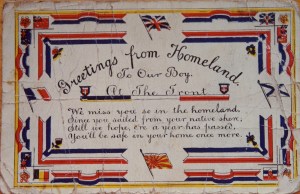 Greetings from Homeland
To Our Boy
At The Front
We miss you so in the homeland,
Since you sailed from your native shore,
Still we hope, ere a year has passed,
You'll be safe in your home once more.